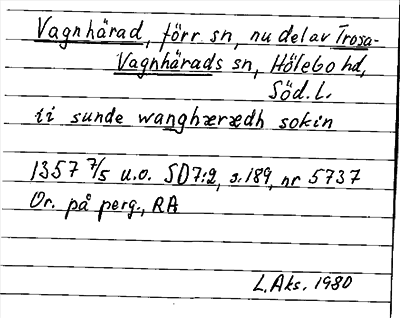 Vagnhärad, förr sn, nu del av Trosa-
Vagnhärads sn, Hölebo hd,
Söd. L.
ti sunde wanghærædh sokin
1357 7/5 u.o. SD7:2, s.189, nr 5737
Or. på perg., RA
L.Aks. 1980